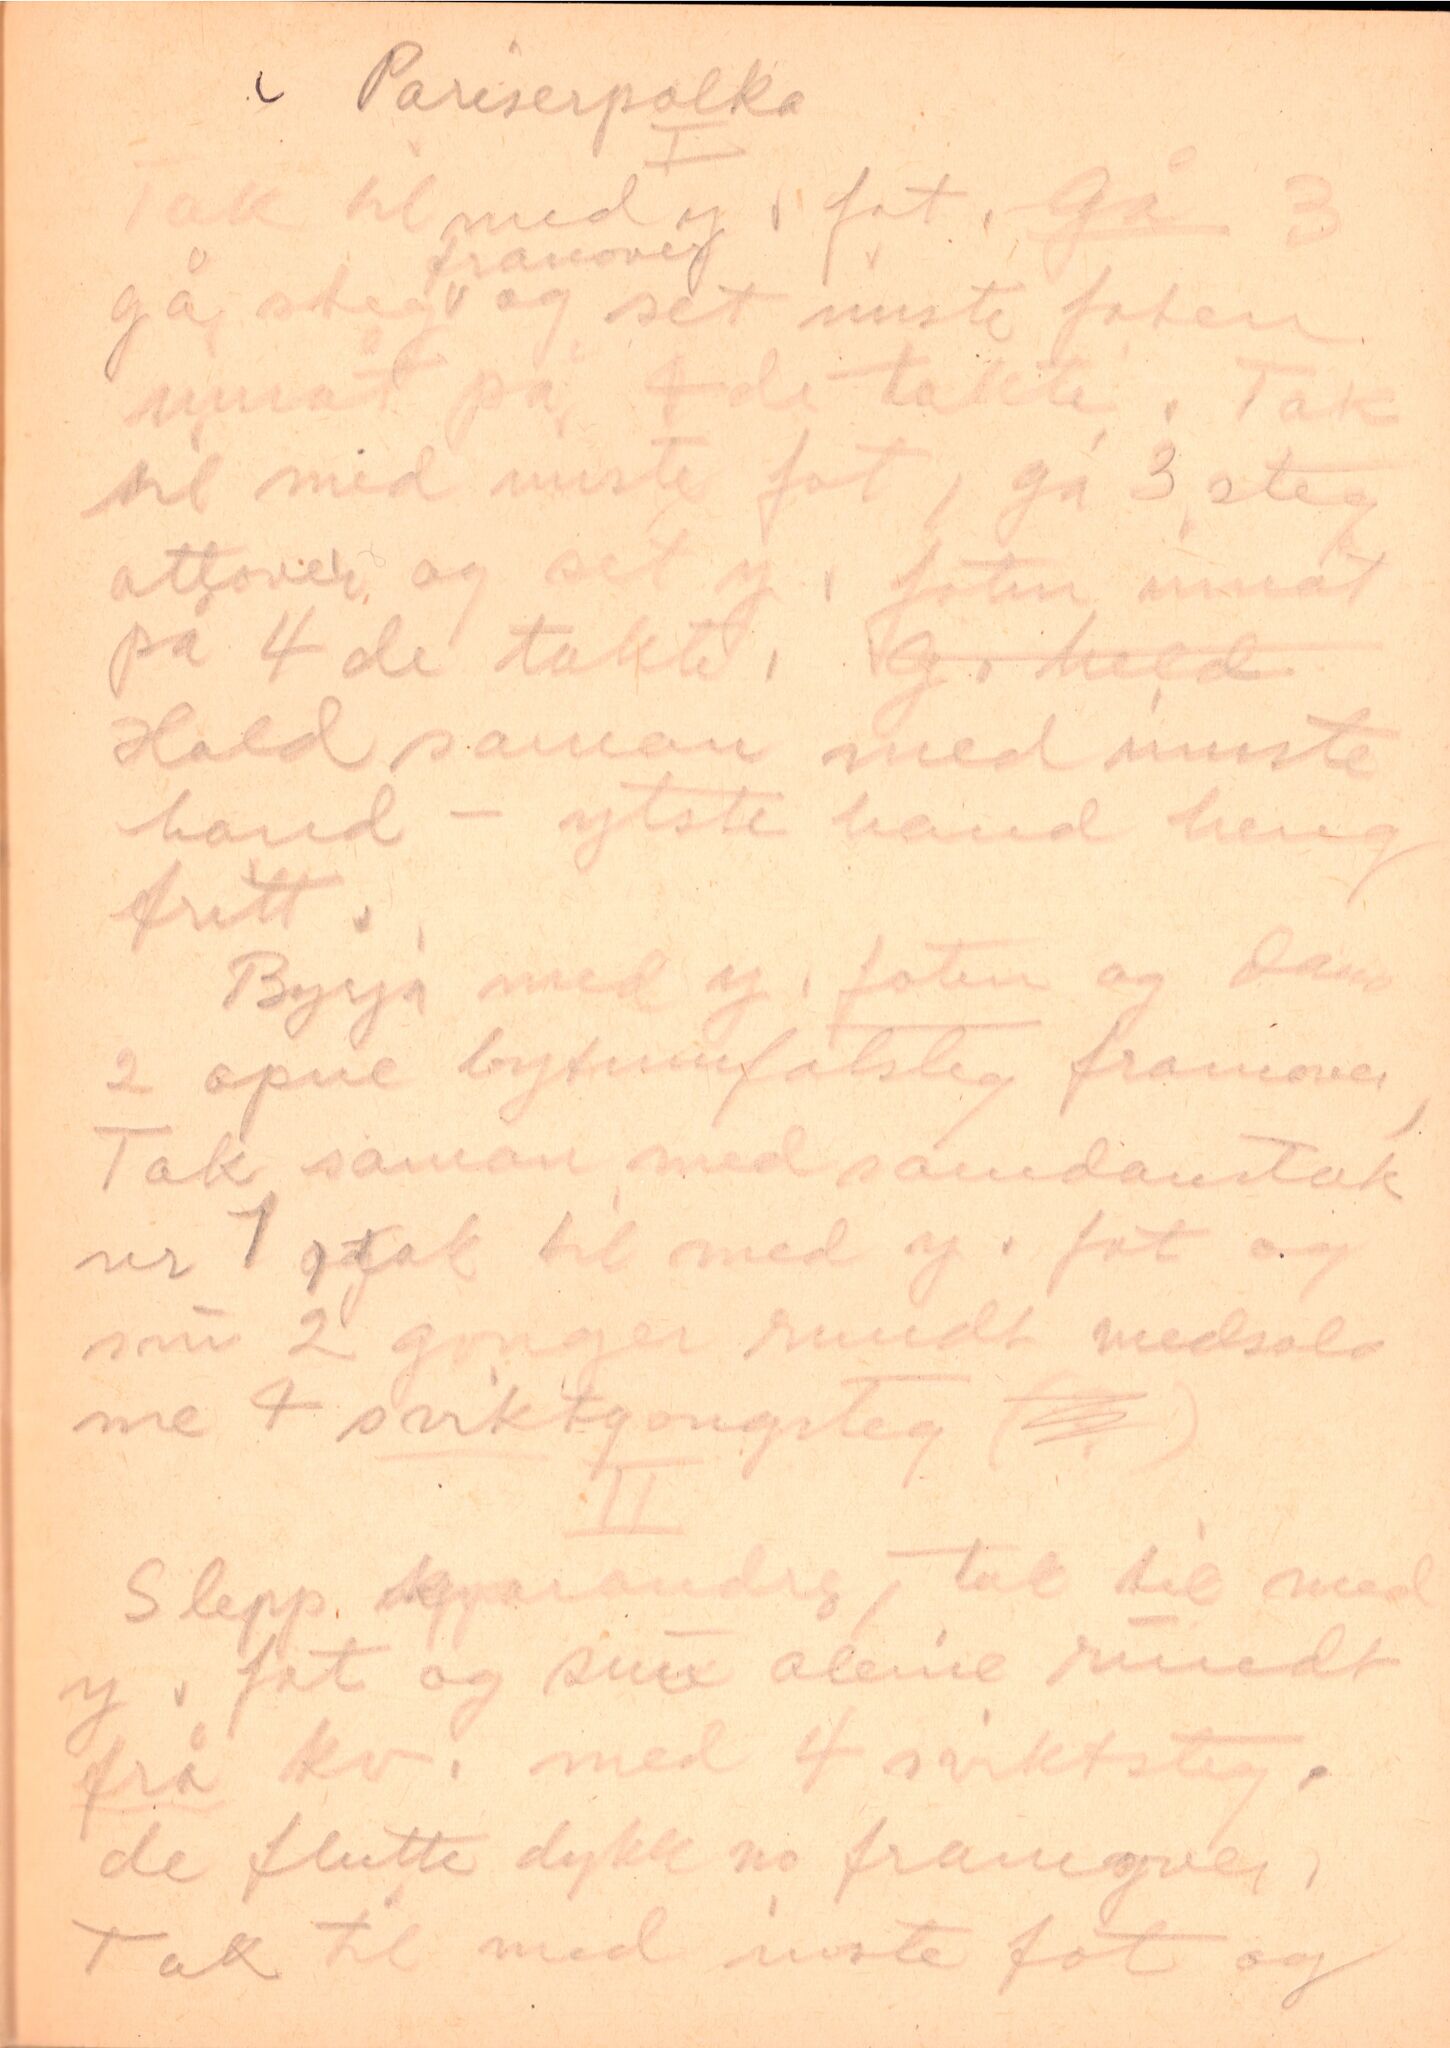 Pariserpolka
I
Tak til med y. fot. Gå 3
framover
gå steg og set inste foten
innåt på 4de takte. Tak
til med inste fot, gå 3 steg
attover og set y. foten innåt
på 4de takte. G. held
Hald saman med inste
hand - ytste hand heng
fritt.
Byrja med y. foten og dans
2 opne bytumfotsteg framover,
Tak saman med samdanstak
nr 1, tak til med y. fot og
snu 2 gonger rundt medsols
me 4 sviktgongsteg ( )
II
Slepp kvarandre, tak til med
y. fot og snu aleine rundt
frå kv. med 4 sviktsteg.
de flutte dykk no framover.
Tak til med inste fot og